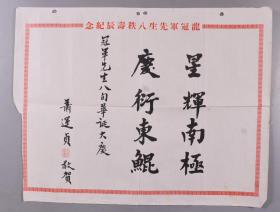 龍冠軍先生八秩壽辰紀念
星輝南極
慶衍東鯤
冠軍先生八旬華誕大慶
蕭運貞 敬賀